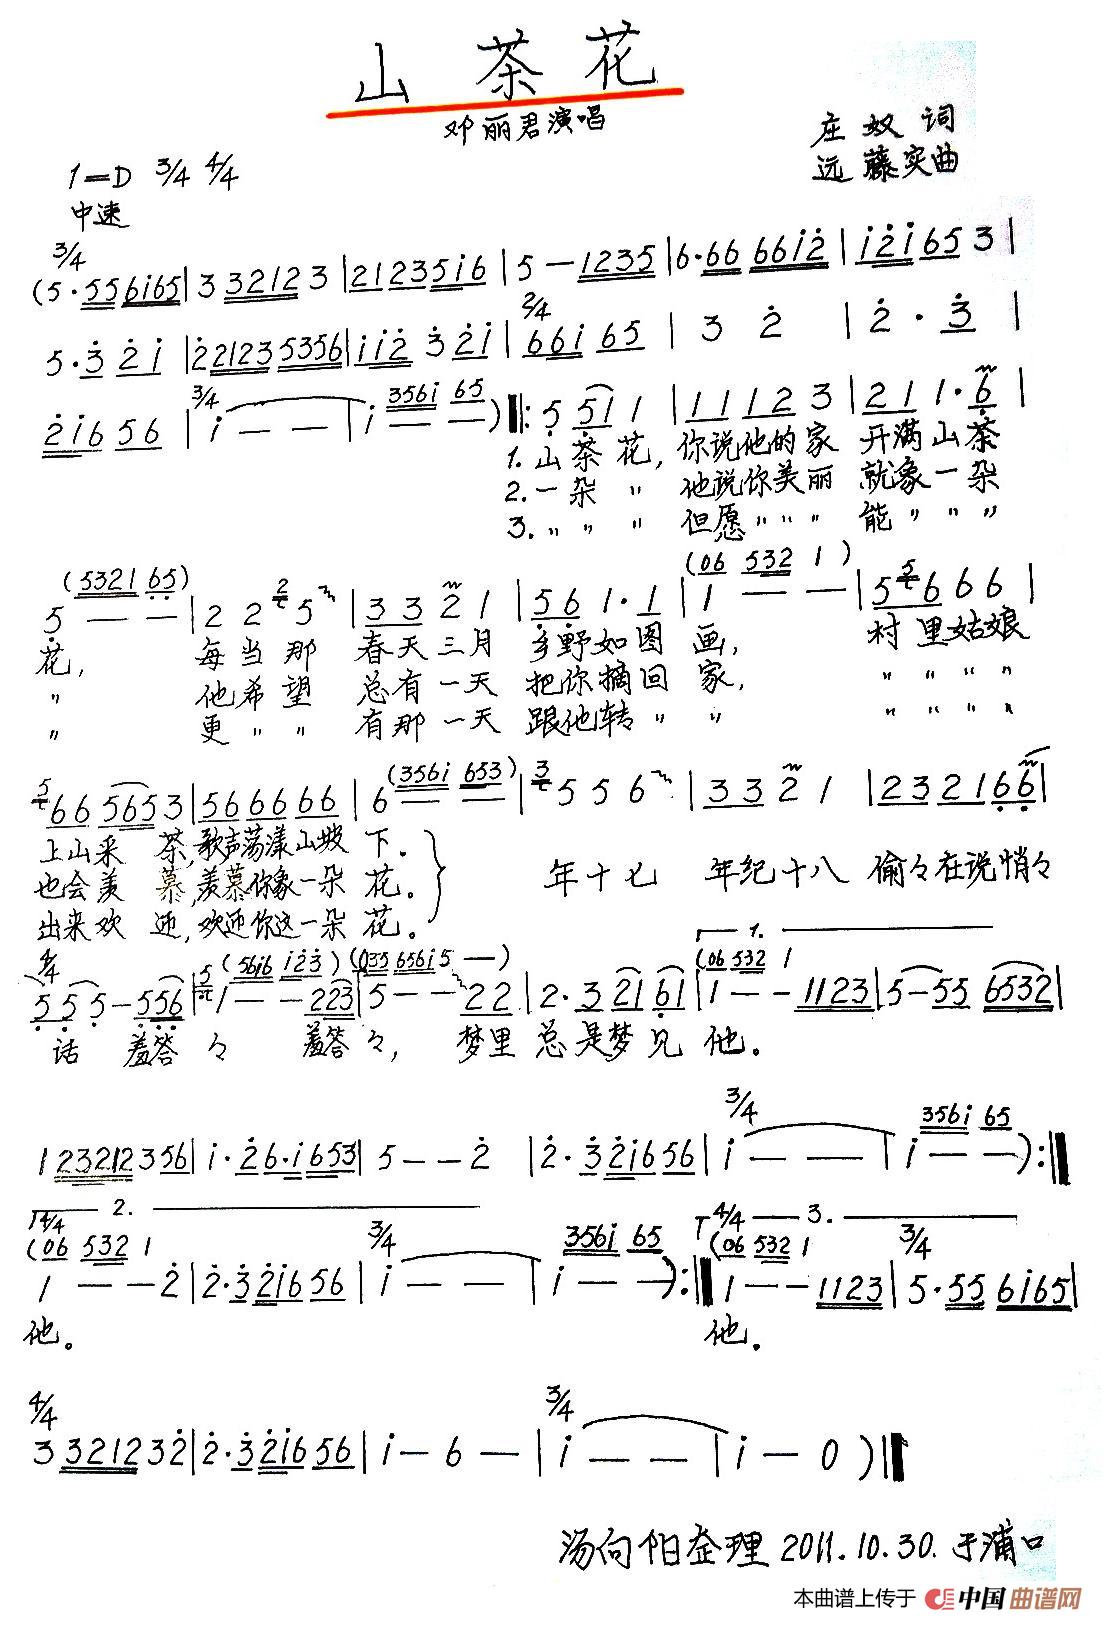 山茶花
邓丽君演唱
庄奴 词
远藤实曲
1=D 3/4 4/4
中速
3/4
(5·5561̇65|3 32123|212351̇6|5－1235|6·66 661̇2̇|1̇2̇1̇65 3|
2/4
5·3̇ 2̇1̇|2̇2123 5356|1̇1̇2̇ 3̇ 2̇1̇|661̇ 65|3 2̇|2̇·3̇|
3/4 3561̇ 65
2̇1̇6 56|1̇－－|1̇－－)‖:5̣ 5̣1 1|11 12 3|21 1·6̣|
1.山茶花,你说他的家 开满山茶
2.一朵 〃 他说你美丽 就象一朵
3.〃 〃 〃 但愿〃〃〃 能〃〃〃
(5321 6̣5̣) (06 532 1)
5̣－－|2 2 5|33 2 1|5̣6̣ 1·1|1－－|56 6 6|
花, 每当那 春天三月 乡野如图画, 村里姑娘
〃 他希望 总有一天 把你摘回家, 〃〃〃〃
〃 更〃〃 有那一天 跟他转〃〃 〃〃〃〃
(3561̇ 653)
66 565 3|56 66 66|6－－|5 5 6|33 2 1|23 21 6̣6̣|
上山采 茶,歌声荡漾山坡下。
也会羡 慕,羡慕你象一朵花。
出来欢 迎,欢迎你这一朵花。
年十七 年纪十八 偷々在说悄々
1.
4/4 (561̇6 1̇2̇3̇) (035 6561̇5－) (06 532 1
5̣ 5̣ 5̣－5̣5̣6̣|1－－223|5－－22|2·3 21 6̣1|1－－1123|5－55 6532|
话 羞答々 羞答々, 梦里总是梦见他。
3/4 3561̇ 65
1 23212356|1̇·2̇6·1̇653|5－－2̇|2̇·3̇2̇1̇656|1̇－－|1̇－－):‖
4/4 2. 4/4 3.
(06 532 1 3/4 3561̇ 65 (06 532 1 3/4
1－－2̇|2̇·3̇2̇1̇656|1̇－－|1̇－－):‖1－－1123|5·55 61̇65|
他。 他。
4/4 3/4
3 321232̇|2̇·3̇2̇1̇656|1̇－6－|1̇－－|1̇－0)‖
汤向阳整理 2011.10.30.于浦口
本曲谱上传于 中国曲谱网